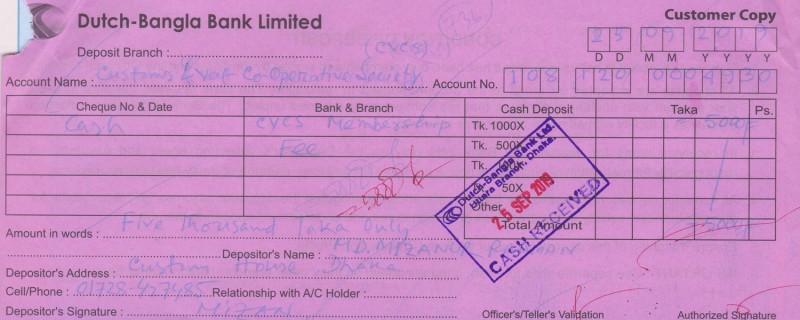 Dutch-Bangla Bank Limited
Customer Copy
Deposit Branch :
(CVCS)
25 09 2019
D D M M Y Y Y Y
Account Name : Customs & vat Co-Operative Society
Account No. 108 120 0004930
Cheque No & Date Bank & Branch Cash Deposit Taka Ps.
Cash CVCS Membership Tk. 1000X = 5000/-
Fee Tk. 500X
Tk.
50X
Other
Total Amount = 5000/-
Dutch-Bangla Bank Ltd.
Uttara Branch, Dhaka.
25 SEP 2019
CASH RECEIVED
Amount in words : Five Thousand Taka Only
Depositor's Name : MD. MIZANUR RAHMAN
Depositor's Address : Custom House Dhaka
Cell/Phone : 01728-427485 Relationship with A/C Holder :
Depositor's Signature : MIZAN
Officer's/Teller's Validation Authorized Signature